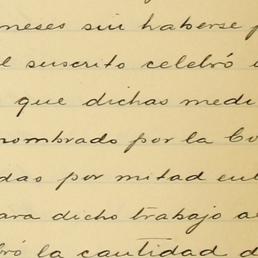 meses sin haberse p
l suscrito celebró
que dichas medi
nombrado por la Co
das por mitad ent
ara dicho trabajo a
bró la cantidad d